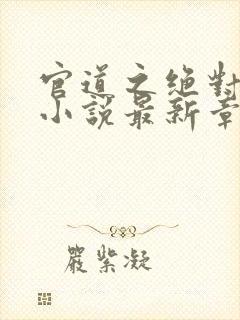 官道之絶對
小說最新章
嚴紫凝